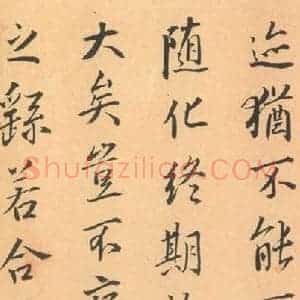 迹猶不能
随化終期
大矣豈不
之繇若合
Shufaziliao.COM